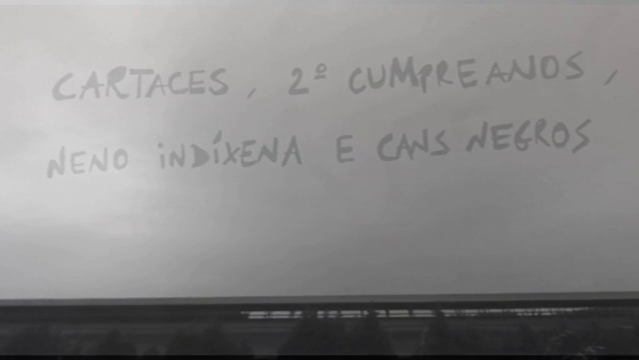 CARTACES, 2º CUMPREANOS,
NENO INDÍXENA E CANS NEGROS